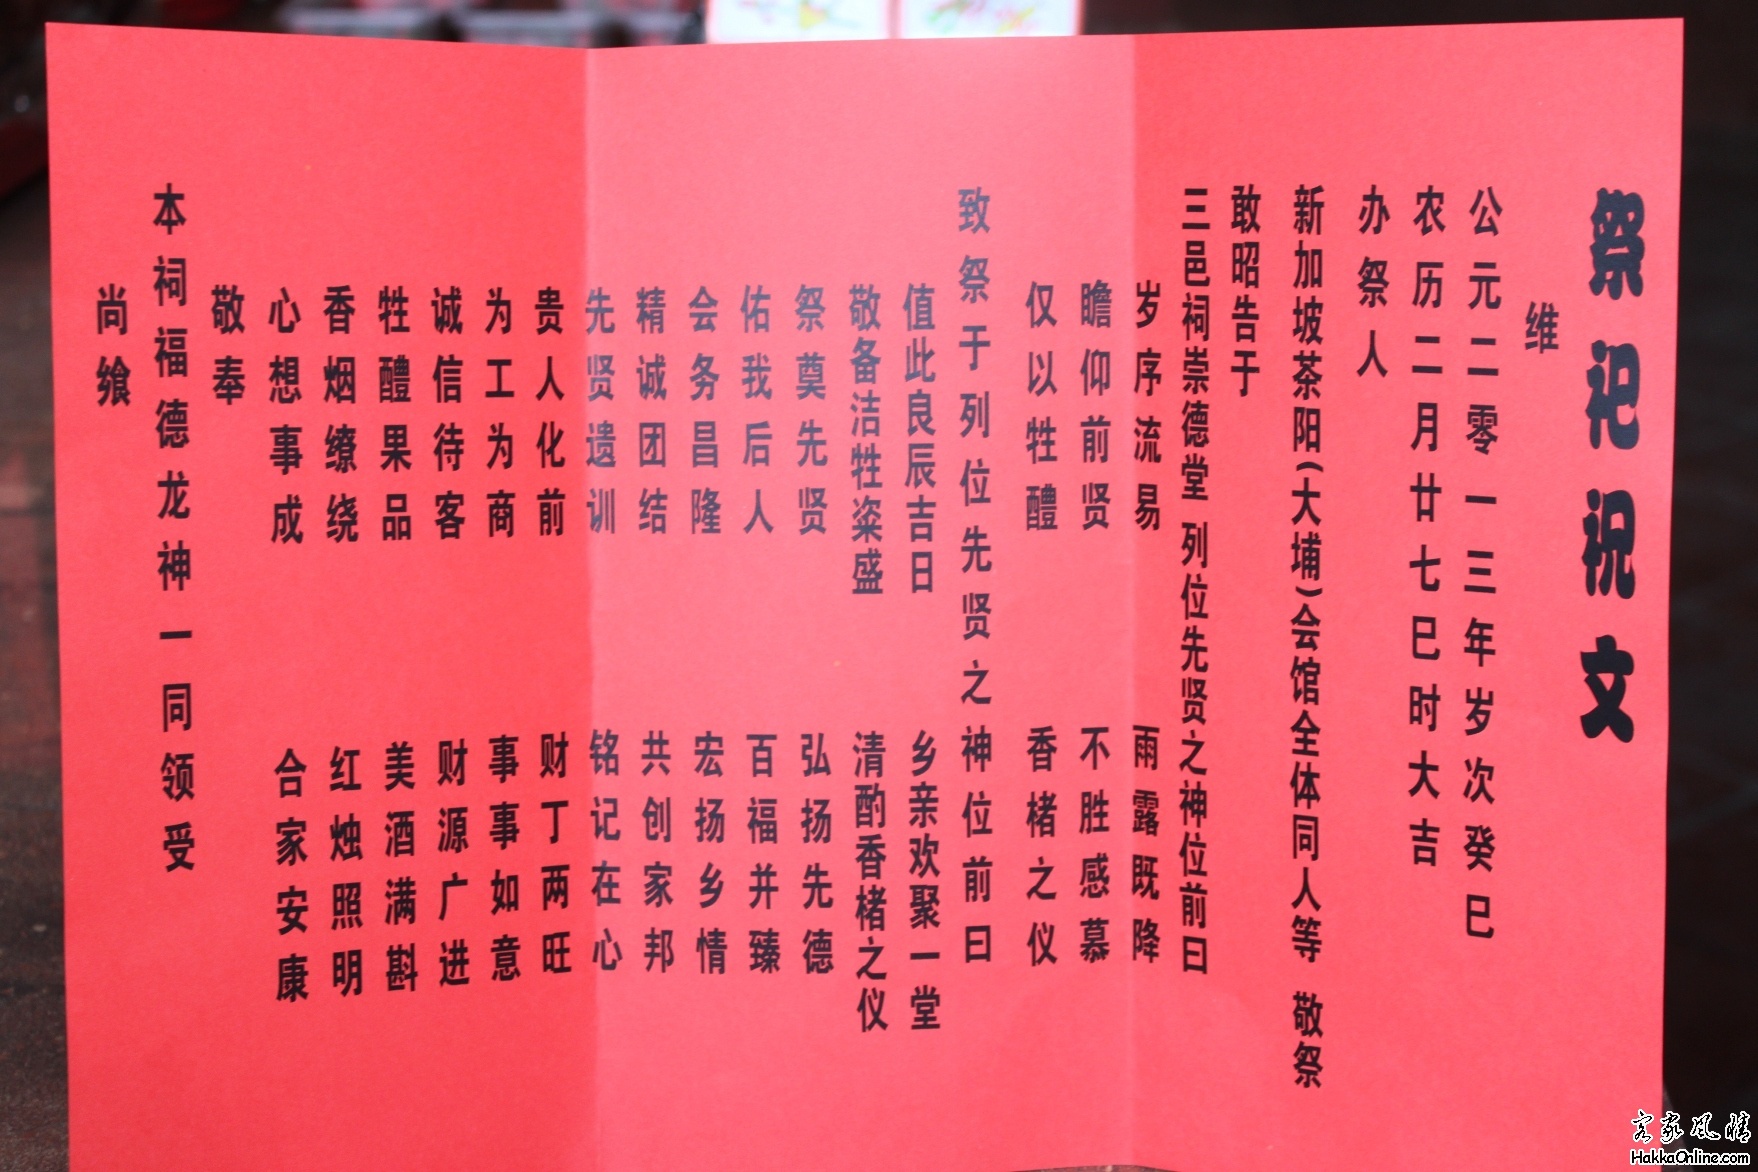 祭祀祝文
维
公元二零一三年岁次癸巳
农历二月廿七巳时大吉
办祭人
新加坡茶阳(大埔)会馆全体同人等 敬祭
敢昭告于
三邑祠崇德堂 列位先贤之神位前曰
岁序流易 雨露既降
瞻仰前贤 不胜感慕
仅以牲醴 香楮之仪
致祭于列位先贤之神位前曰
值此良辰吉日 乡亲欢聚一堂
敬备洁牲粢盛 清酌香楮之仪
祭奠先贤 弘扬先德
佑我后人 百福并臻
会务昌隆 宏扬乡情
精诚团结 共创家邦
先贤遗训 铭记在心
贵人化前 财丁两旺
为工为商 事事如意
诚信待客 财源广进
牲醴果品 美酒满斟
香烟缭绕 红烛照明
心想事成 合家安康
敬奉
本祠福德龙神一同领受
尚飨
客家风情
HakkaOnline.com